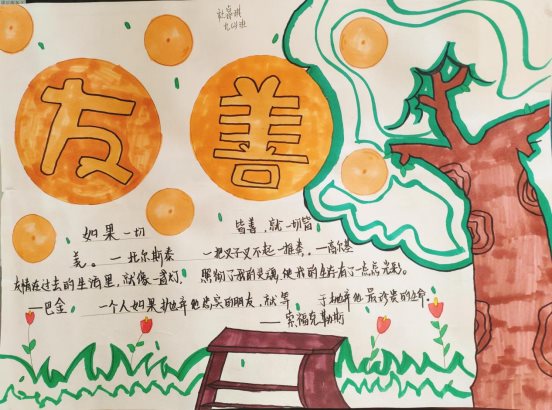 友善
如果一切 皆善，就一切皆
美。—托尔斯泰 —高尔基
友情在过去的生活里，就像一盏灯，照彻了我的灵魂，使我的生存有了一点点光彩。
—巴金 一个人如果抛弃他忠实的朋友，就等 于抛弃他最珍贵的生命。
—索福克勒斯